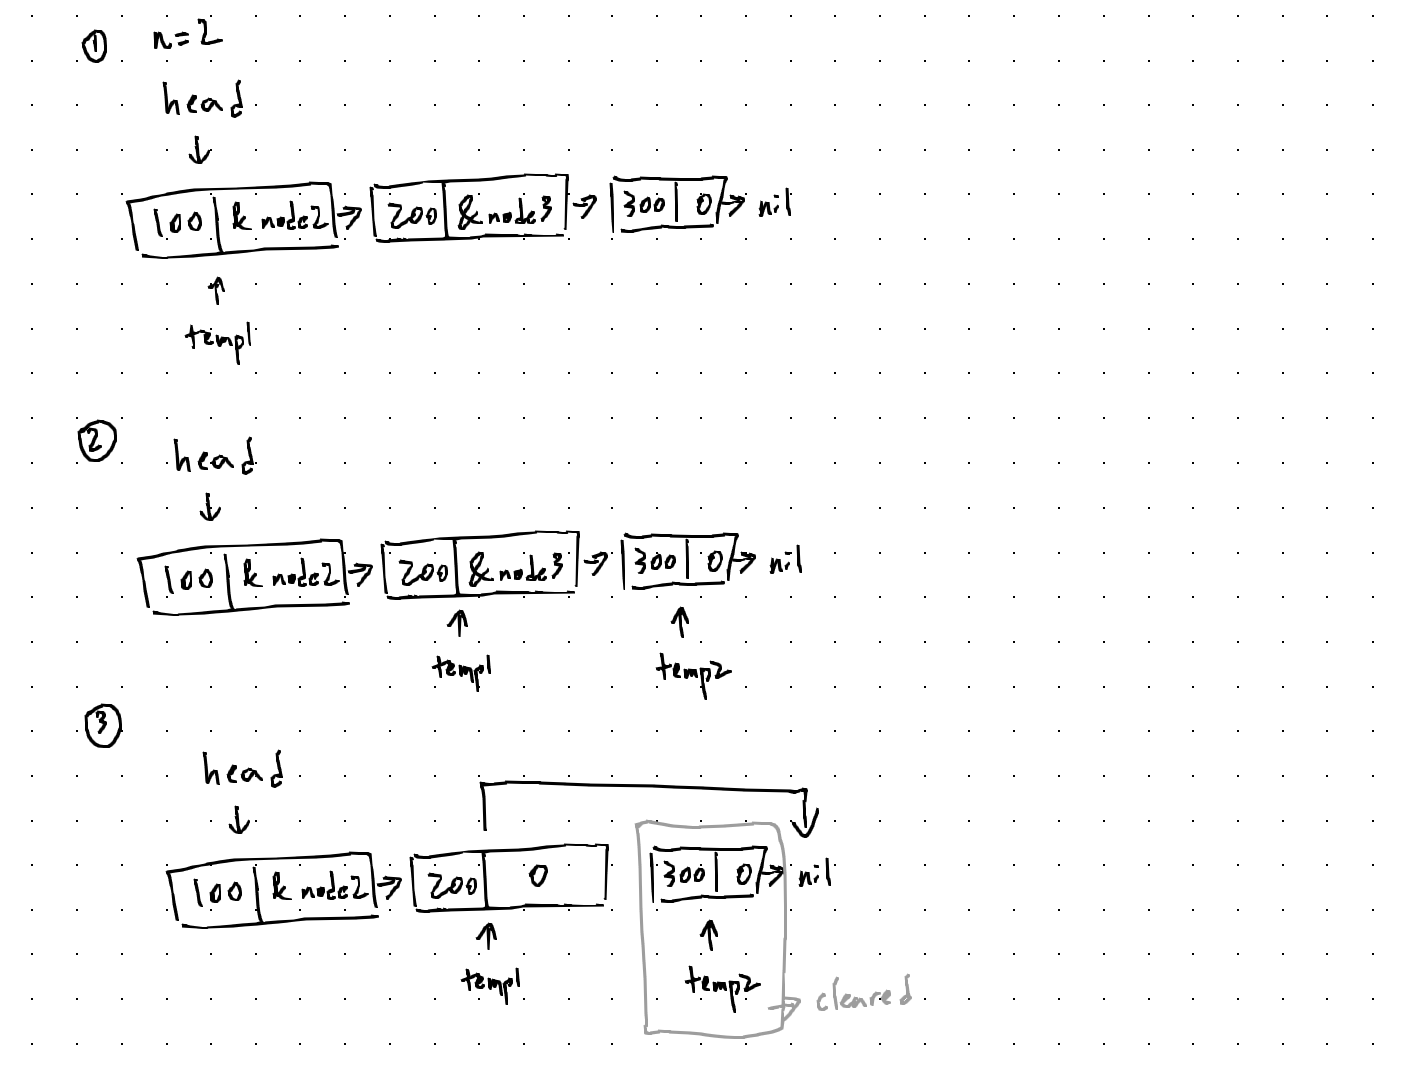 ① n=2
head
100 & node2 200 &node3 300 0 nil
temp1
②
head
100 & node2 200 &node3 300 0 nil
temp1 temp2
③
head
100 & node2 200 0 300 0 nil
temp1 temp2
cleared